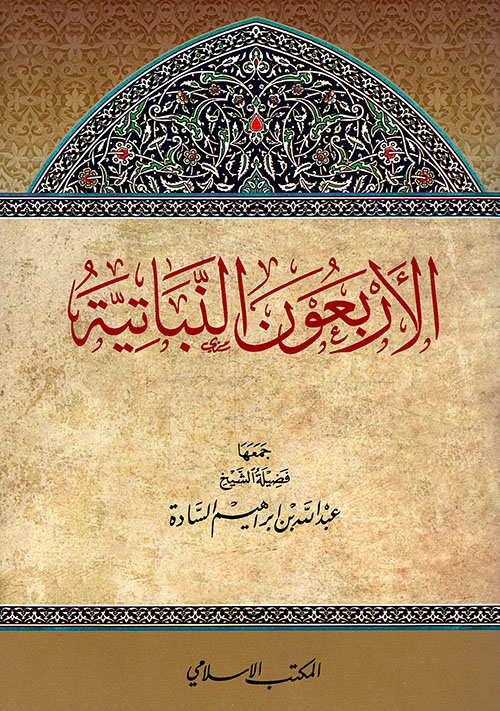 الأَرْبَعُونَ النَّبَاتِيَّةُ
جَمَعَهَا
فَضِيلَةُ الشَّيْخِ
عبد الله بن ابراهيم السَّادة
المكتب الاسلامي